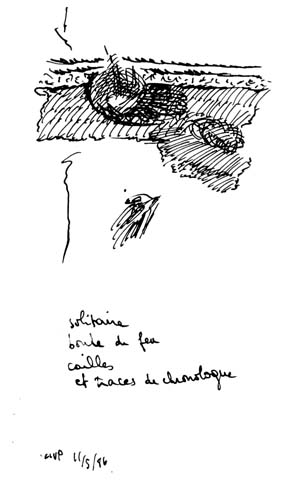 solitaire
boule du feu
cailles
et traces de chronologue
MVP 11/5/96